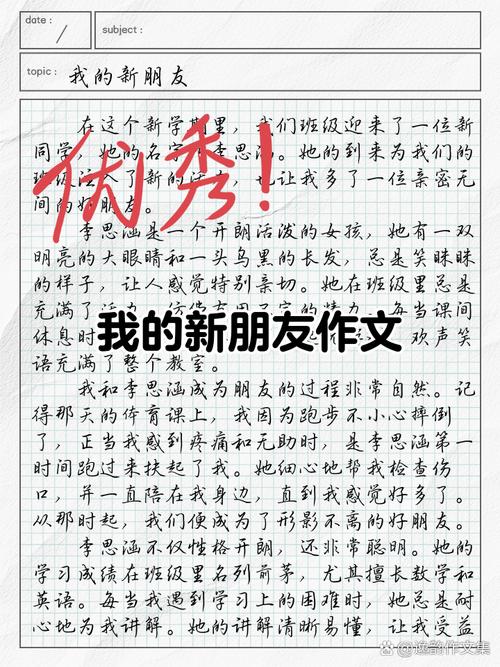 date :
subject :
topic : 我的新朋友
在这个新学期里，我们班级迎来了一位新
同学，她的名字 李思涵。她的到来为我们的
班级注入了新的活 ，也让我多了一位亲密无
间的好朋友。
优秀！
李思涵是一个开朗活泼的女孩，她有一双
明亮的大眼睛和一头乌黑的长发，总是笑眯眯
的样子，让人感觉特别亲切。她在班级里总是
充满了 每当课间
休息时 欢声笑
我的新朋友作文
语充满了整个教室。
我和李思涵成为朋友的过程非常自然。记
得那天的体育课上，我因为跑步不小心摔倒
了，正当我感到疼痛和无助时，是李思涵第一
时间跑过来扶起了我。她细心地帮我检查伤
口，并一直陪在我身边，直到我感觉好多了。
从那时起，我们便成为了形影不离的好朋友。
李思涵不仅性格开朗，还非常聪明。她的
学习成绩在班级里名列前茅，尤其擅长数学和
英语。每当我遇到学习上的困难时，她总是耐
心地为我讲解。她的讲解清晰易懂，让我受益
@逸韵作文集